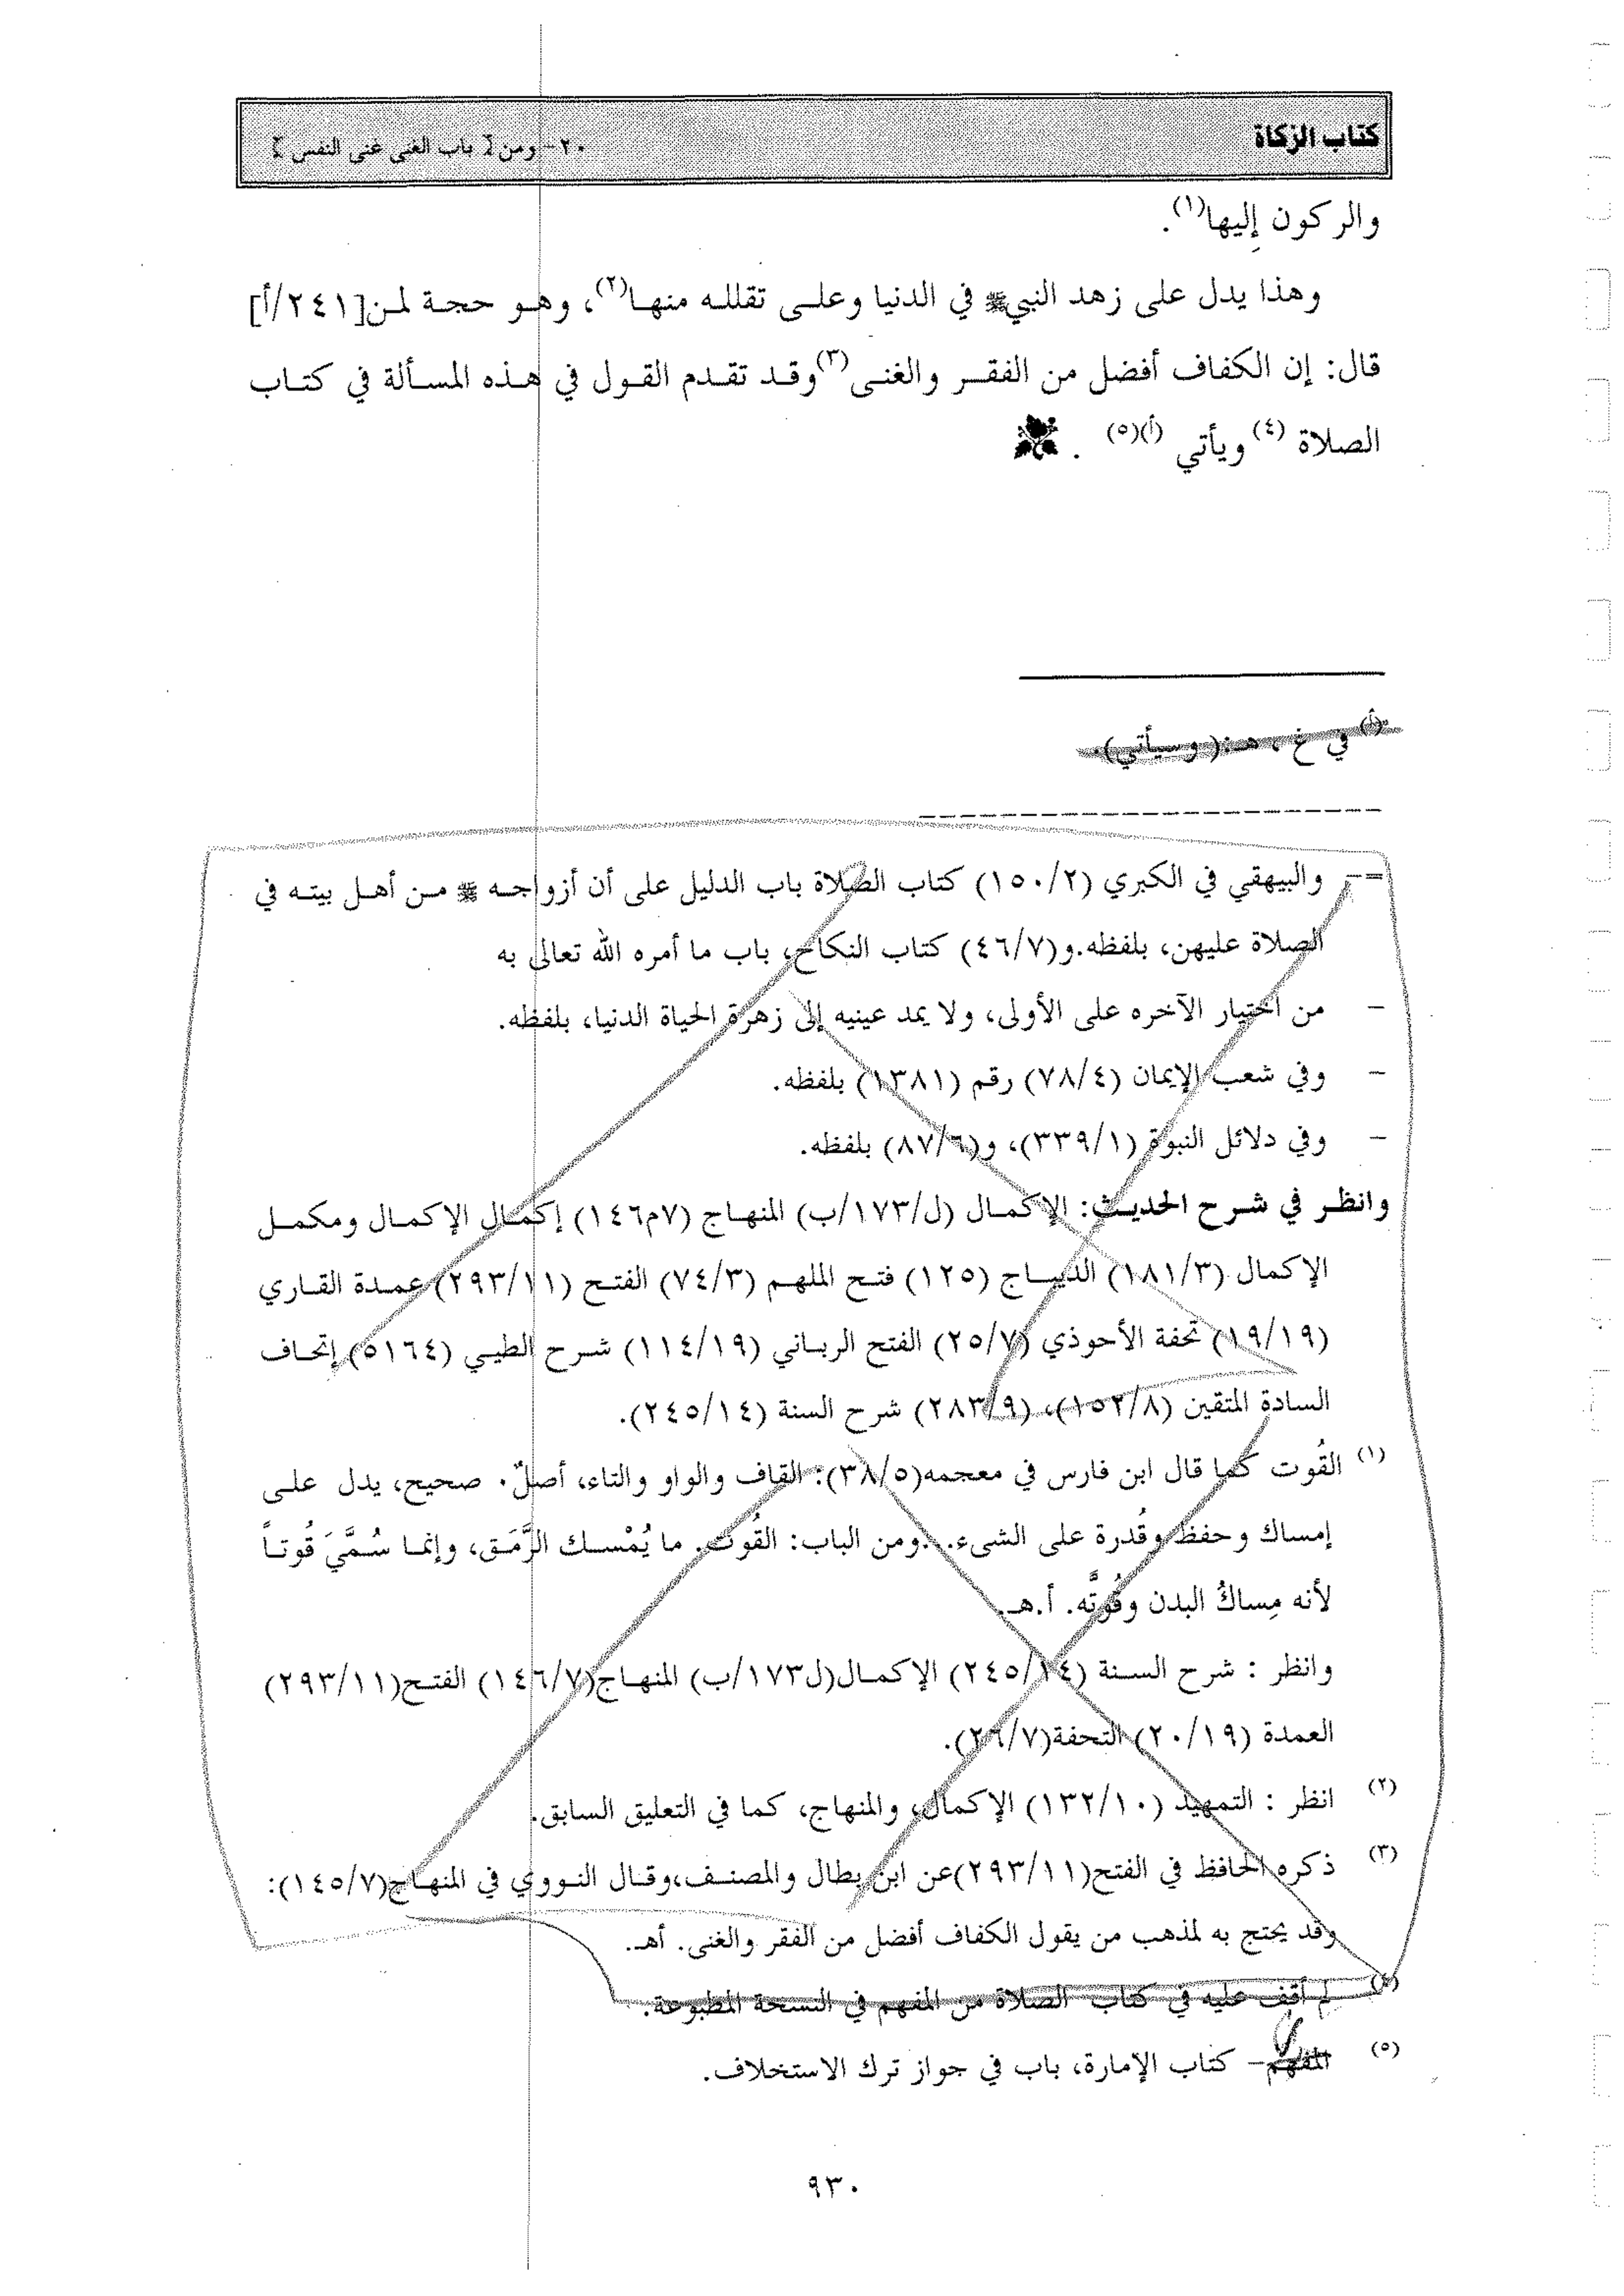 كتاب الزكاة
٢٠- ومن ﴿ باب الغنى غنى النفس ﴾
والركون إِليها(١).
وهذا يدل على زهد النبيﷺ في الدنيا وعلى تقلله منها(٢)، وهو حجة لمن[٢٤١/أ]
قال: إن الكفاف أفضل من الفقر والغنى(٣)وقد تقدم القول في هذه المسألة في كتاب
الصلاة (٤) ويأتي (أ)(٥) .
(أ) في غ ، هـ:( وسيأتي).
=- والبيهقي في الكبري (١٥٠/٢) كتاب الصلاة باب الدليل على أن أزواجه ﷺ من أهل بيته في
الصلاة عليهن، بلفظه.و(٤٦/٧) كتاب النكاح، باب ما أمره الله تعالى به
- من اختيار الآخره على الأولى، ولا يمد عينيه إلى زهرة الحياة الدنيا، بلفظه.
- وفي شعب الإيمان (٧٨/٤) رقم (١٣٨١) بلفظه.
- وفي دلائل النبوة (٣٣٩/١)، و(٨٧/٦) بلفظه.
وانظر في شرح الحديث: الإكمال (ل/١٧٣/ب) المنهاج (٧م١٤٦) إكمال الإكمال ومكمل
الإكمال (١٨١/٣) الديباج (١٢٥) فتح الملهم (٧٤/٣) الفتح (٢٩٣/١١) عمدة القاري
(١٩/١٩) تحفة الأحوذي (٢٥/٧) الفتح الرباني (١١٤/١٩) شرح الطيبي (٥١٦٤) إتحاف
السادة المتقين (١٥٢/٨)، (٢٨٣/٩) شرح السنة (٢٤٥/١٤).
(١) القُوت كما قال ابن فارس في معجمه(٣٨/٥): القاف والواو والتاء، أصلٌ. صحيح، يدل على
إمساك وحفظ وقُدرة على الشىء...ومن الباب: القُوت. ما يُمْسك الرَّمَق، وإنما سُمَّيَ قُوتاً
لأنه مِساكُ البدن وقُوتَّه. أ.هـ.
وانظر : شرح السنة (٢٤٥/١٤) الإكمال(ل١٧٣/ب) المنهاج(١٤٦/٧) الفتح(٢٩٣/١١)
العمدة (٢٠/١٩) التحفة(٢٦/٧).
(٢) انظر : التمهيد (١٣٢/١٠) الإكمال، والمنهاج، كما في التعليق السابق.
(٣) ذكره الحافظ في الفتح(٢٩٣/١١)عن ابن بطال والمصنف،وقال النووي في المنهاج(١٤٥/٧):
وقد يحتج به لمذهب من يقول الكفاف أفضل من الفقر والغنى. أهـ.
(٤) لم أقف عليه في كتاب الصلاة من المفهم في النسخة المطبوعة.
(٥) المفهم- كتاب الإمارة، باب في جواز ترك الاستخلاف.
٩٣٠